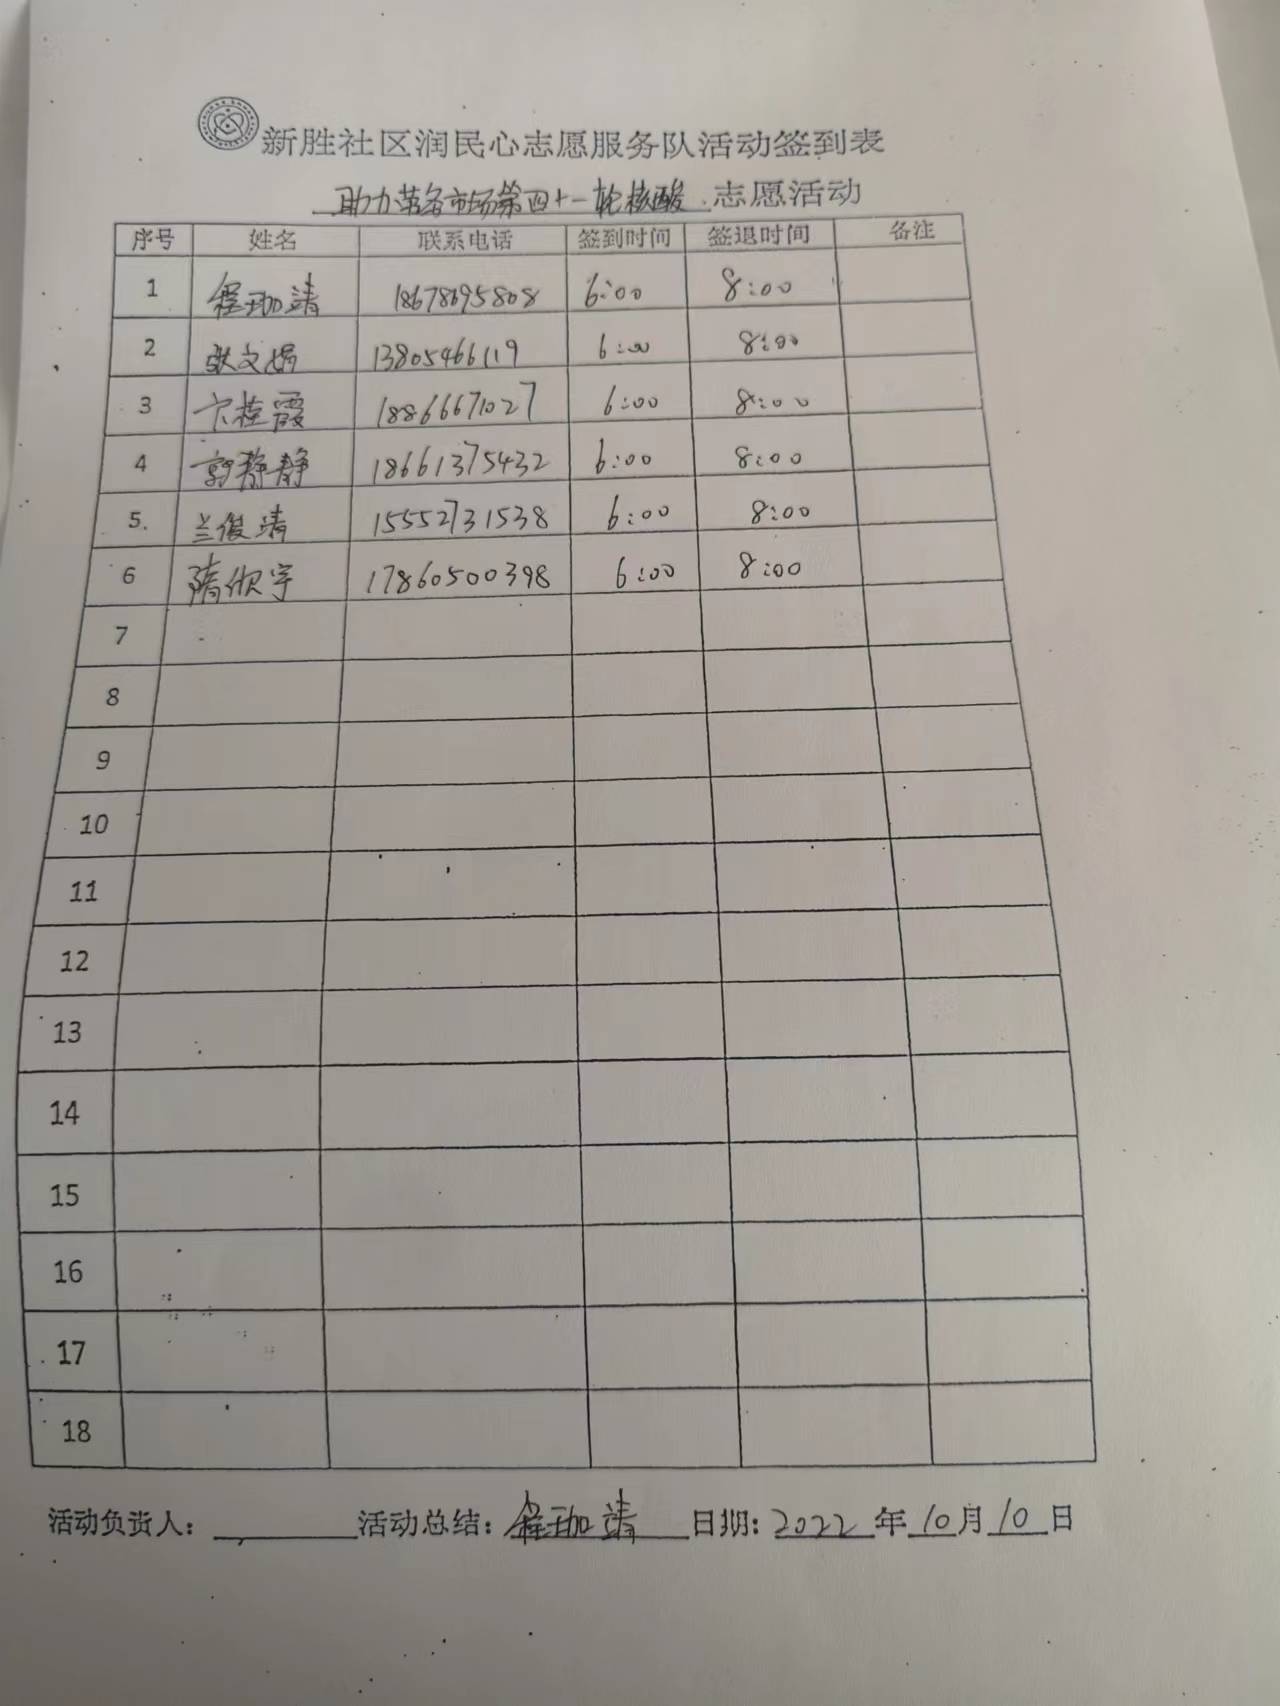 新胜社区润民心志愿服务队活动签到表
助力革各市场第四十一轮核酸 志愿活动
序号 姓名 联系电话 签到时间 签退时间 备注
1 程珈靖 18678695808 6:00 8:00
2 张文娟 13805466119 6:00 8:00
3 卞桂霞 18866671027 6:00 8:00
4 郭静静 18661375432 6:00 8:00
5. 兰俊靖 15552731538 6:00 8:00
6 隋欣宇 17860500398 6:00 8:00
7
8
9
10
11
12
13
14
15
16
17
18
活动负责人: 活动总结: 程珈靖 日期: 2022 年 10 月 10 日